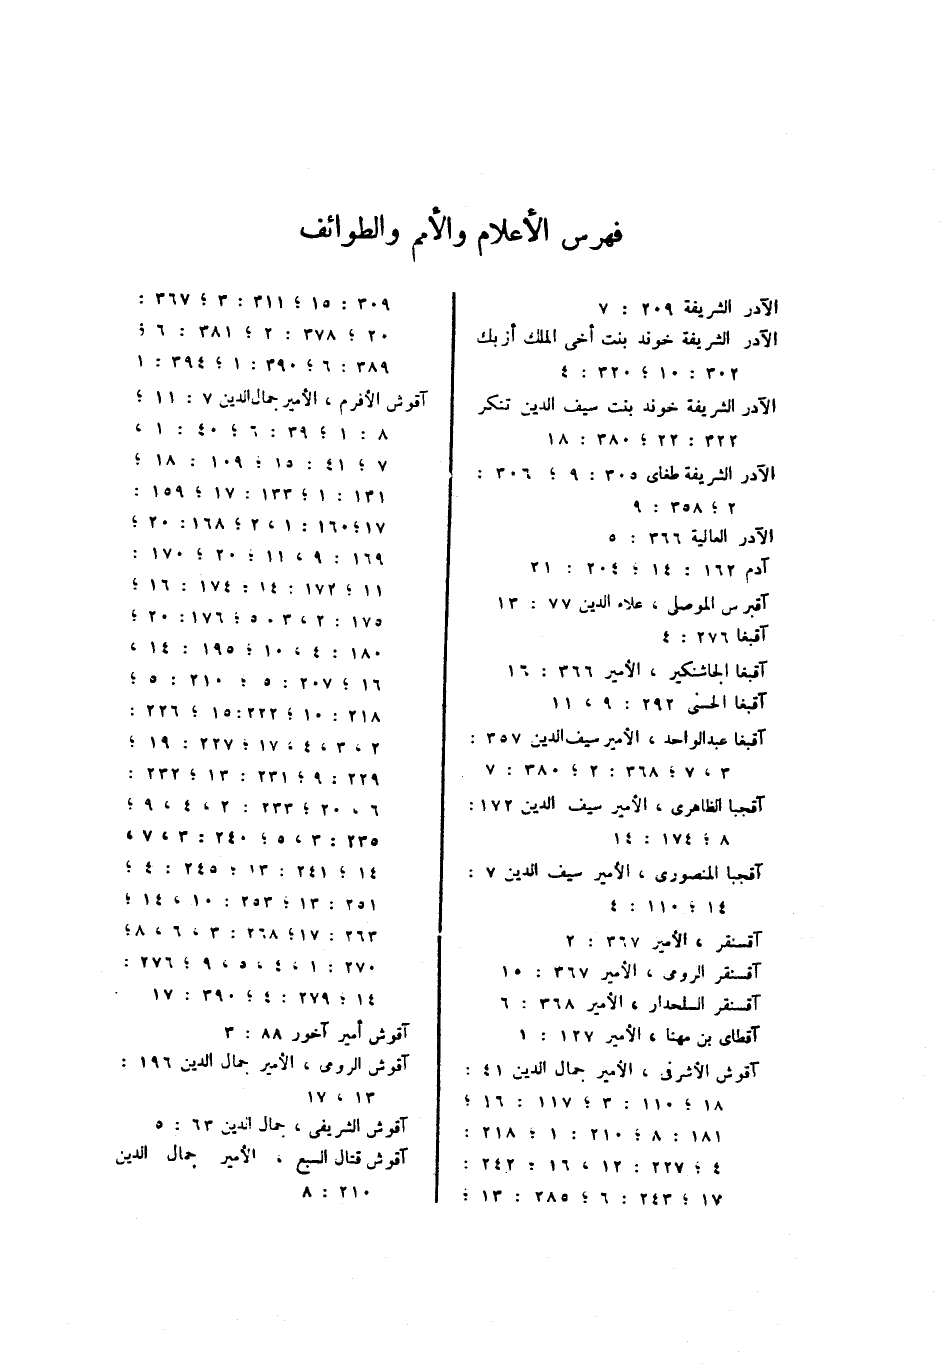 فهرس الأعلام والأمم والطوائف
الآدر الشريفة ٢٠٩ : ٧
الآدر الشريفة خوند بنت أخى الملك أزبك
٣٠٢ : ١٠ ؛ ٣٢٠ : ٤
الآدر الشريفة خوند بنت سيف الدين تنكر
٣٢٢ : ٢٢ ؛ ٣٨٠ : ١٨
الآدر الشريفة طغاى ٣٠٥ : ٩ ؛ ٣٠٦ :
٢ ؛ ٣٥٨ : ٩
الآدر العالية ٣٦٦ : ٥
آدم ١٦٢ : ١٤ ؛ ٢٠٤ : ٢١
آقبرس الموصلى ، علاء الدين ٧٧ : ١٣
آقبغا ٢٧٦ : ٤
آقبغا الجاشنكير ، الأمير ٣٦٦ : ١٦
آقبغا الحسنى ٢٩٢ : ٩ ، ١١
آقبغا عبدالواحد ، الأمير سيف‌الدين ٣٥٧ :
٣ ، ٧ ؛ ٣٦٨ : ٢ ؛ ٣٨٠ : ٧
آقجبا الظاهرى ، الأمير سيف الدين ١٧٢ :
٨ ؛ ١٧٤ : ١٤
آقجبا المنصورى ، الأمير سيف الدين ٧ :
١٤ ؛ ١١٠ : ٤
آقسنقر ، الأمير ٣٦٧ : ٢
آقسنقر الرومى ، الأمير ٣٦٧ : ١٥
آقسنقر السلحدار ، الأمير ٣٦٨ : ٦
آقطاى بن مهنا ، الأمير ١٢٧ : ١
آقوش الأشرفى ، الأمير جمال الدين ٤١ :
١٨ ؛ ١١٠ : ٣ ؛ ١١٧ : ١٦ ؛
١٨١ : ٨ ؛ ٢١٠ : ١ ؛ ٢١٨ :
٤ ؛ ٢٢٧ : ١٢ ، ١٦ ؛ ٢٤٢ :
١٧ ؛ ٢٤٣ : ٦ ؛ ٢٨٥ : ١٣ ؛
٣٠٩ : ١٥ ؛ ٣١١ : ٣ ؛ ٣٦٧ :
٢٠ ؛ ٣٧٨ : ٢ ؛ ٣٨١ : ٦ ؛
٣٨٩ : ٦ ؛ ٣٩٠ : ١ ؛ ٣٩٤ : ١
آقوش الأفرم ، الأمير جمال‌الدين ٧ : ١١ ؛
٨ : ١ ؛ ٣٩ : ٦ ؛ ٤٠ : ١ ،
٧ ؛ ٤١ : ١٥ ؛ ١٠٩ : ١٨ ؛
١٣١ : ١ ؛ ١٣٣ : ١٧ ؛ ١٥٩ :
١٧ ؛ ١٦٠ : ١ ، ٢ ؛ ١٦٨ : ٢٠ ؛
١٦٩ : ٩ ، ١١ ؛ ٢٠ ؛ ١٧٠ :
١١ ؛ ١٧٢ : ١٤ ؛ ١٧٤ : ١٦ ؛
١٧٥ : ٢ ، ٣ ، ٥ ؛ ١٧٦ : ٢٠ ؛
١٨٠ : ٤ ، ١٠ ؛ ١٩٥ : ١٤ ،
١٦ ؛ ٢٠٧ : ٥ ؛ ٢١٠ : ٥ ؛
٢١٨ : ١٠ ؛ ٢٢٢ : ١٥ ؛ ٢٢٦ :
٢ ، ٣ ، ٤ ، ١٧ ؛ ٢٢٧ : ١٩ ؛
٢٢٩ : ٩ ؛ ٢٣١ : ١٣ ؛ ٢٣٢ :
٦ ، ٢٠ ؛ ٢٣٣ : ٢ ، ٤ ، ٩ ؛
٢٣٥ : ٣ ، ٥ ؛ ٢٤٠ : ٣ ، ٧ ،
١٤ ؛ ٢٤١ : ١٣ ؛ ٢٤٥ : ٤ ؛
٢٥١ : ١٣ ؛ ٢٥٣ : ١٠ ، ١٤ ؛
٢٦٣ : ١٧ ؛ ٢٦٨ : ٣ ، ٦ ، ٨ ؛
٢٧٠ : ١ ، ٤ ، ٥ ، ٩ ؛ ٢٧٦ :
١٤ ؛ ٢٧٩ : ٤ ؛ ٣٩٠ : ١٧
آقوش أمير آخور ٨٨ : ٣
آقوش الرومى ، الأمير جمال الدين ١٩٦ :
١٣ ، ١٧
آقوش الشريفى ، جمال الدين ٦٣ : ٥
آقوش قتال السبع ، الأمير جمال الدين
٢١٠ : ٨